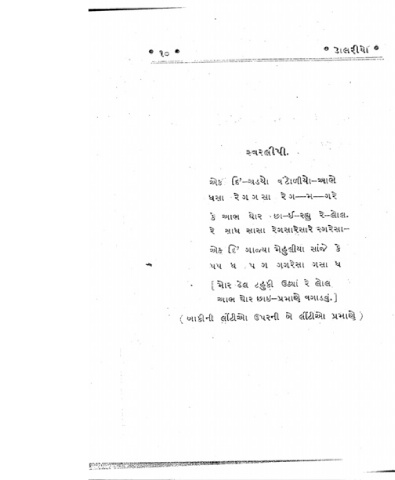 • ૧૦ •
• ઝાલરીયો •
સ્વરલીપી.
એક દિ'–ચડયો વંટોળીયો–આભે
ધસા રેગ ગસા રેગ—મ—ગરે
કે આભ ઘોર છા–ઈ–રહ્યુ રે–લોલ.
રે સાધ સાસા રેગસારેસારે રગરેસા–
એક દિ' ગાજ્યા મેહુલીયા સાંજે કે
પપ ધ પ ગ ગગરેસા ગસા ધ
[ મોર ઢેલ ટહુકી ઉઠ્યાં રે લોલ
આભ ઘોર છાઇ–પ્રમાણે વગાડવું. ]
( બાકીની લીંટીઓ ઉપરની બે લીંટીઓ પ્રમાણે )